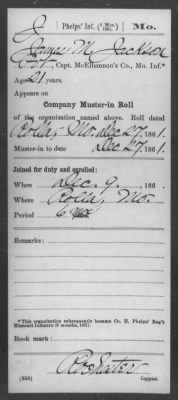 J | Phelps' Inf. (6 Mos., 1861.) | Mo.
James M. Jackson
Capt. McElhannon's Co., Mo. Inf.*
Age 21 years.
Appears on
Company Muster-in Roll
of the organization named above. Roll dated
Rolla, Mo. Dec 27, 1861.
Muster-in to date Dec 27, 1861.
Joined for duty and enrolled:
When Dec. 9, 186 .
Where Rolla, Mo.
Period 6 mos
Remarks:
*This organization subsequently became Co. E, Phelps' Reg't
Missouri Infantry (6 months, 1861).
Book mark:
(356) Copyist.